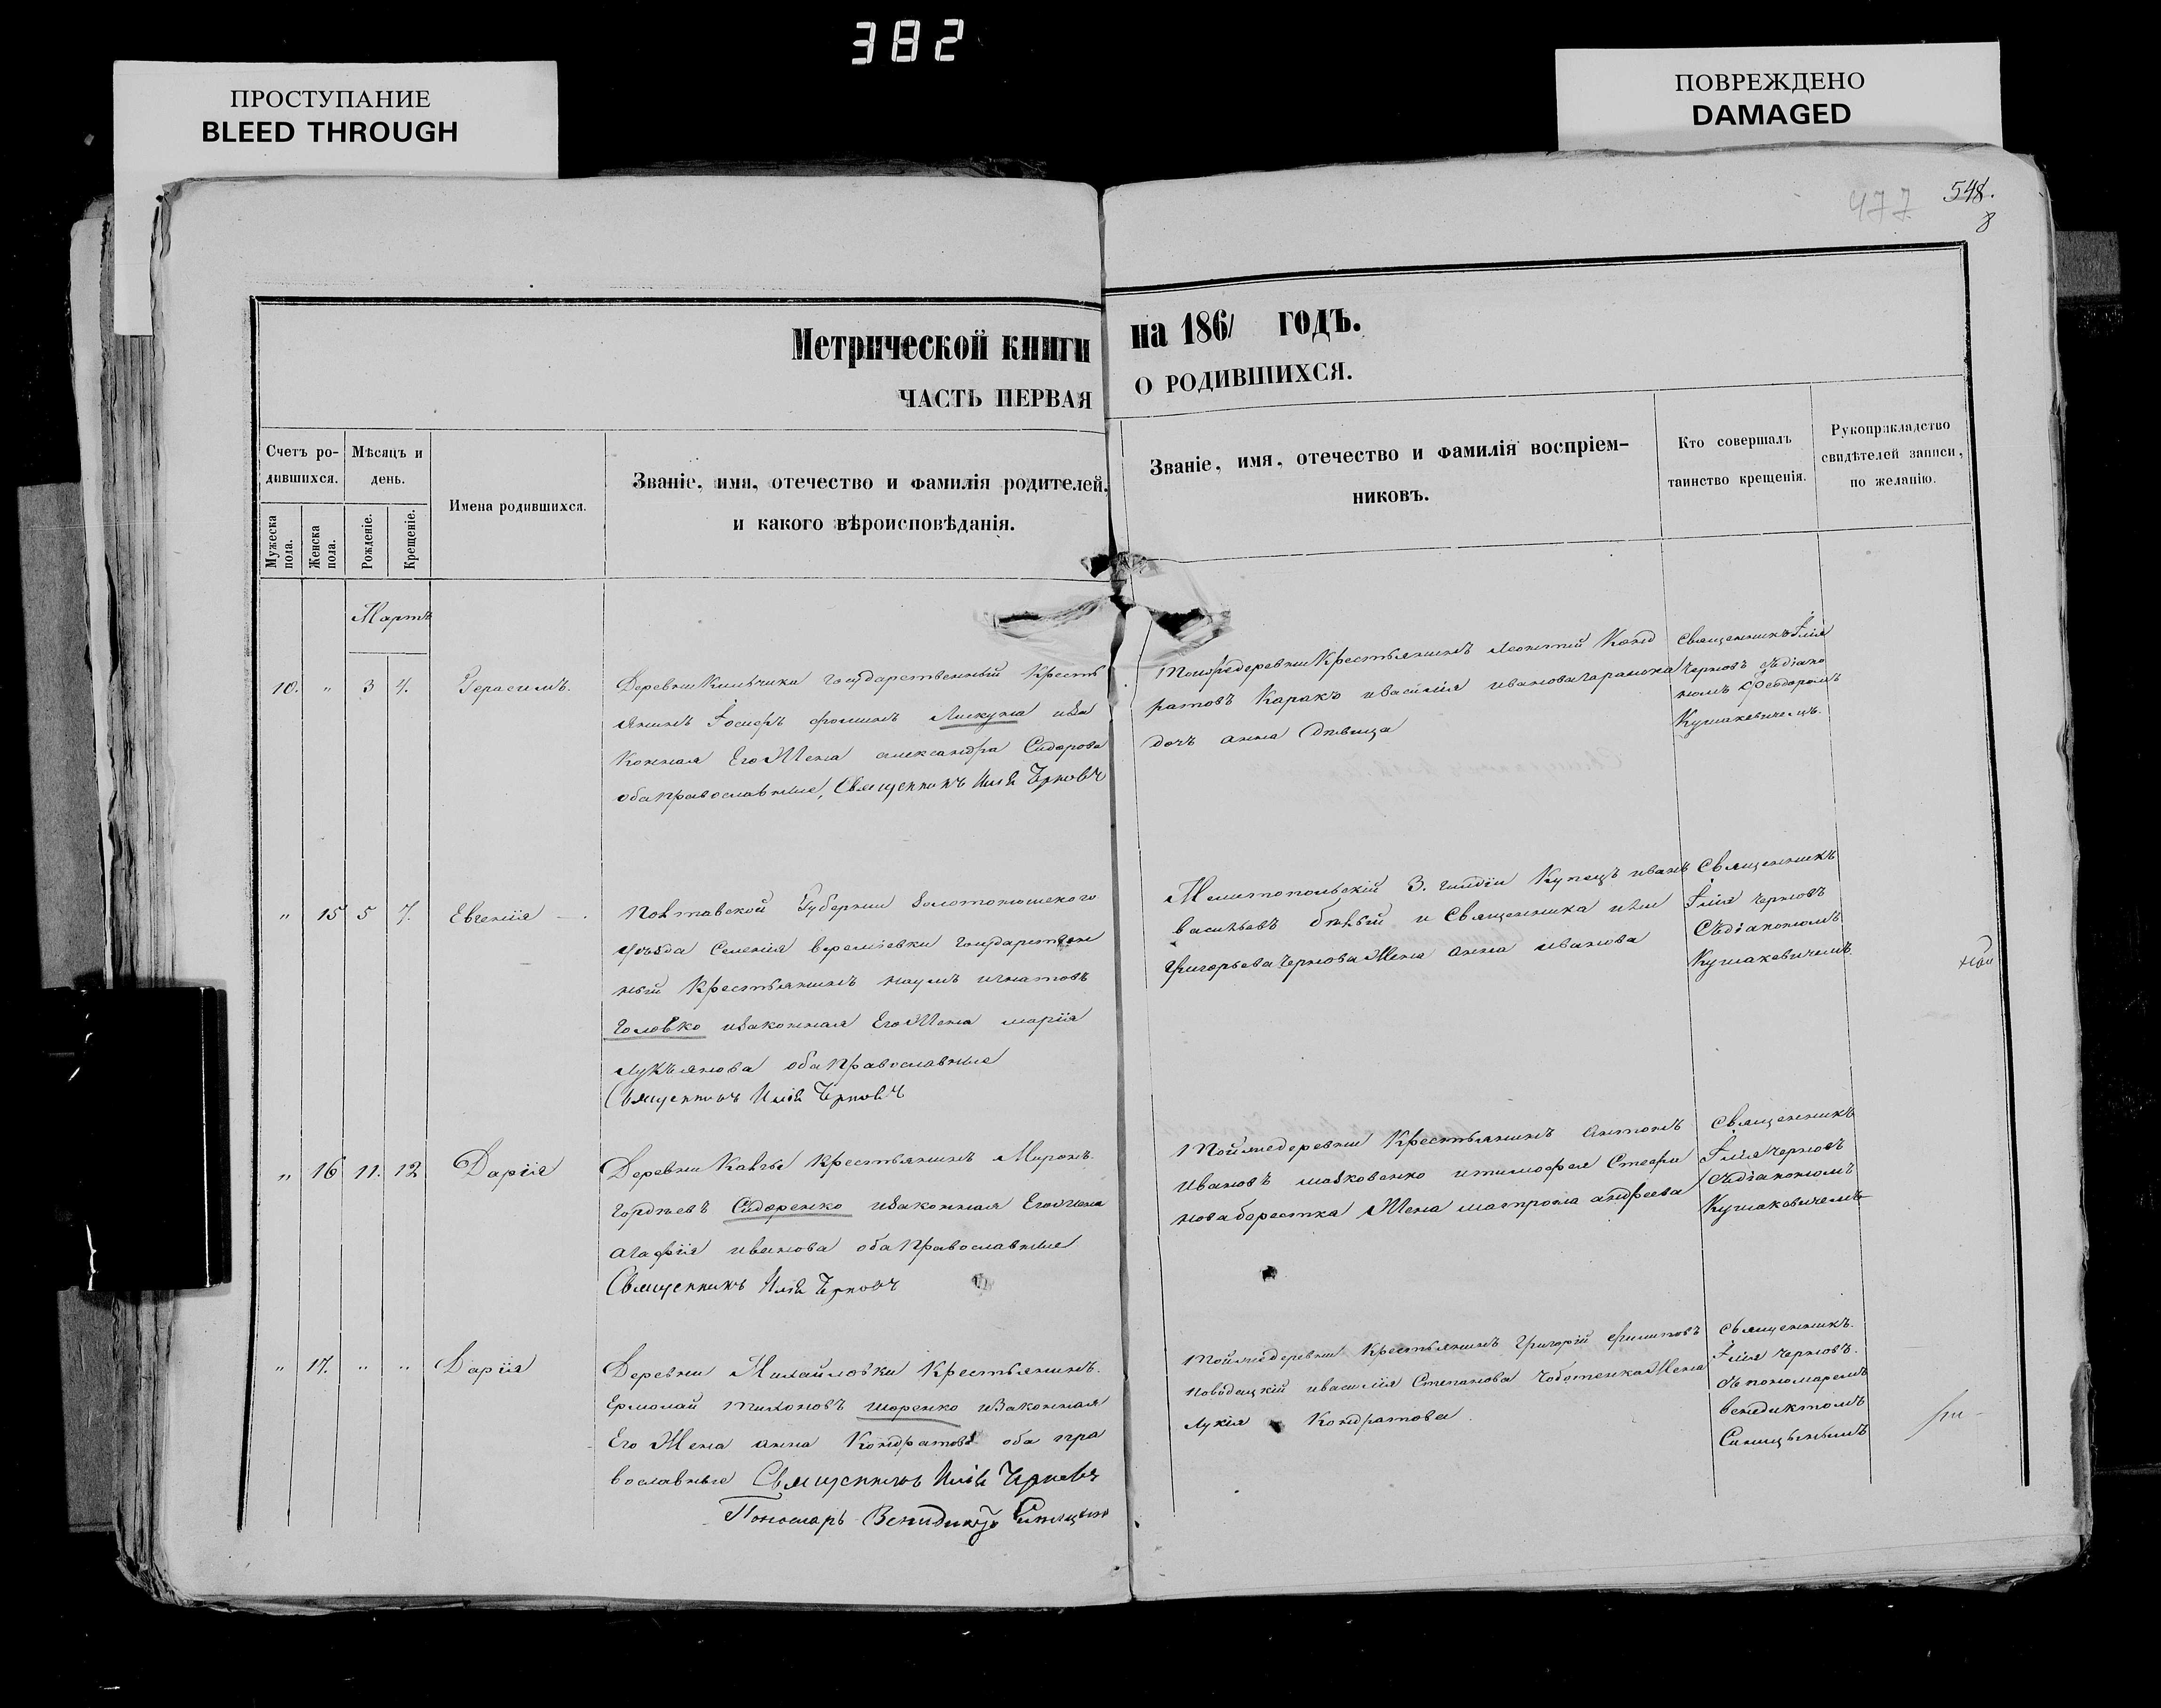 382
ПРОСТУПАНИЕ
BLEED THROUGH
ПОВРЕЖДЕНО
DAMAGED
477
548.
8
Метрической книги на 1861 годъ.
ЧАСТЬ ПЕРВАЯ О РОДИВШИХСЯ.
Счетъ ро-
дившихся.
Мужеска
пола.
Женска
пола.
Мѣсяцъ и
день.
Рожденіе.
Крещеніе.
Имена родившихся.
Званіе, имя, отечество и фамилія родителей,
и какого вѣроисповѣданія.
Званіе, имя, отечество и фамилія воспріем-
никовъ.
Кто совершалъ
таинство крещенія.
Рукоприкладство
свидѣтелей записи,
по желанію.
Мартъ
10. " 3 4. Герасимъ.
Деревни государственный Кресть
янинъ Іосифъ фоминъ изa
Конная Его Жена александра Сидорова
оба православные, Священникъ Илія Чрновъ
Тойжедеревни Крестьянинъ Леонтій Конд
ратовъ ивасилія иванова
дочь анна Девица
Священникъ Ілія
Черновъ сдіако
номъ Ѳеодоромъ
Кушакевичемъ.
" 15 5 7. Евгенія
Полтавской Губерніи Золотоношского
уѣзда Селенія веремѣевки государствен
ный Крестьянинъ наумъ игнатовъ
Головко изаконная Его Жена марія
лукьянова оба православные
Священникъ Илія Чрновъ
Мелитопольскій 3. гилдіи Купецъ иванъ
васильевъ бѣлый и Священника иліи
григорьева чернова Жена анна иванова
Священникъ
Ілія черновъ
Сдіакономъ
Кушакевичемъ
" 16 11. 12 Дарія
Деревни Крестьянинъ Миронъ
гордѣевъ Сидоренко изаконная Его жена
агафія иванова оба православные
Священникъ Илія Чрновъ
Тойжедеревни Крестьянинъ антонъ
ивановъ маковенко итимофея Стефа
нова Жена матрона андреева
Священникъ
Ілія черновъ
Сдіакономъ
Кушакевичемъ
" 17. " " Дарія
Деревни Михайловки Крестьянинъ
Ермолай тихоновъ изаконная
Его Жена анна Кондратова оба пра
вославные Священникъ Илія Чрновъ
Пономарь Венидиктъ Синицынъ
Тойжедеревни Крестьянинъ григорій филиповъ
ивасилія Степанова Чоботенка Жена
лукія Кондратова
Священникъ
Ілія черновъ
съ пономаремъ
венедиктомъ
Синицынымъ